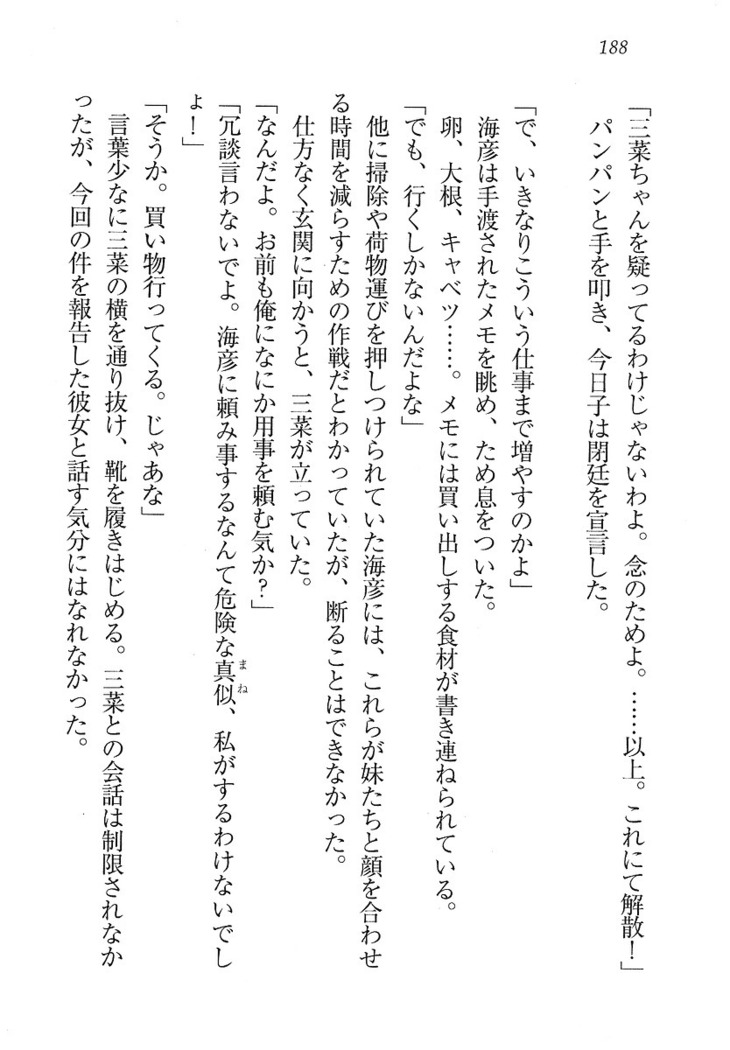 188
「三菜ちゃんを疑ってるわけじゃないわよ。念のためよ。……以上。これにて解散！」
パンパンと手を叩き、今日子は閉廷を宣言した。
「で、いきなりこういう仕事まで増やすのかよ」
海彦は手渡されたメモを眺め、ため息をついた。
卵、大根、キャベツ……。メモには買い出しする食材が書き連ねられている。
「でも、行くしかないんだよな」
他に掃除や荷物運びを押しつけられていた海彦には、これらが妹たちと顔を合わせ
る時間を減らすための作戦だとわかっていたが、断ることはできなかった。
仕方なく玄関に向かうと、三菜が立っていた。
「なんだよ。お前も俺になにか用事を頼む気か？」
「冗談言わないでよ。海彦に頼み事するなんて危険な真似、私がするわけないでし
まね
ょ！」
「そうか。買い物行ってくる。じゃあな」
言葉少なに三菜の横を通り抜け、靴を履きはじめる。三菜との会話は制限されなか
ったが、今回の件を報告した彼女と話す気分にはなれなかった。